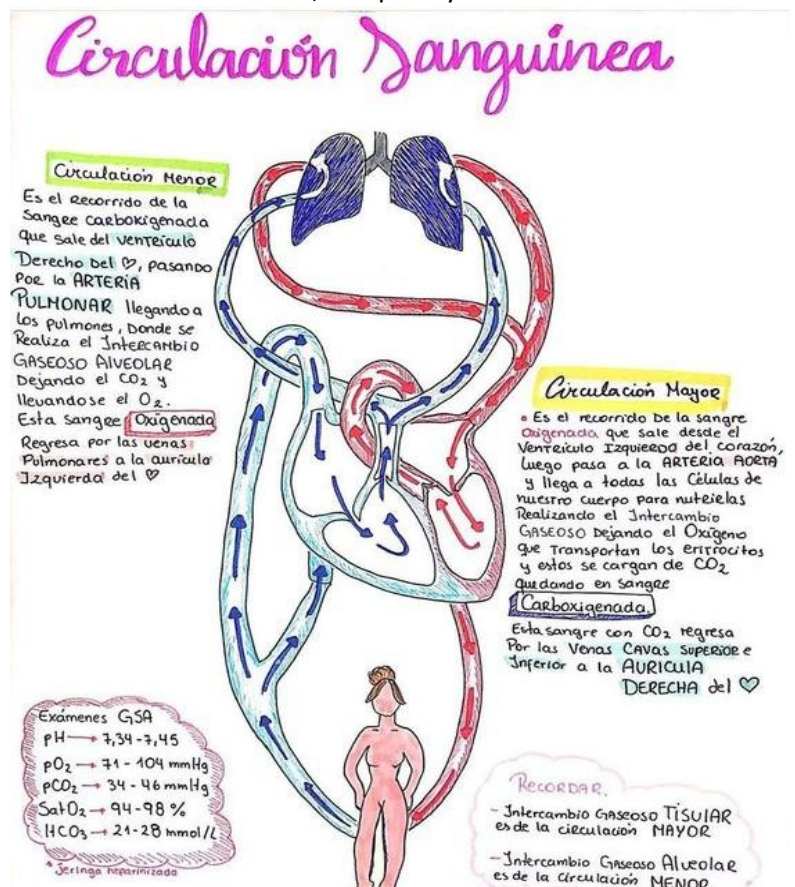 Circulación Sanguínea
Circulación Menor
Es el recorrido de la
Sangre carboxigenada
que sale del ventrículo
Derecho del ♡, pasando
Por la ARTERIA
PULMONAR llegando a
los pulmones, Donde se
Realiza el Intercambio
GASEOSO AlVEOLAR
Dejando el CO₂ y
llevandose el O₂.
Esta sangre Oxigenada
Regresa por las venas
Pulmonares a la aurícula
Izquierda del ♡
Circulación Mayor
• Es el recorrido De la sangre
Oxigenada que sale desde el
Ventrículo Izquierdo del corazón,
luego pasa a la ARTERIA AORTA
y llega a todas las Células de
nuestro cuerpo para nutrirlas
Realizando el Intercambio
GASEOSO Dejando el Oxígeno
que Transportan los eritrocitos
y estos se cargan de CO₂
quedando en sangre
Carboxigenada.
Esta sangre con CO₂ regresa
Por las Venas CAVAS SUPERIOR e
Inferior a la AURICULA
DERECHA del ♡
Exámenes GSA
pH → 7,34-7,45
pO₂ → 71 - 104 mmHg
pCO₂ → 34 - 46 mmHg
SatO₂ → 94-98 %
HCO₃ → 21-28 mmol/L
* Jeringa heparinizada
RECORDAR.
- Intercambio Gaseoso TISULAR
es de la circulación MAYOR
- Intercambio Gaseoso Alveolar
es de la circulación MENOR